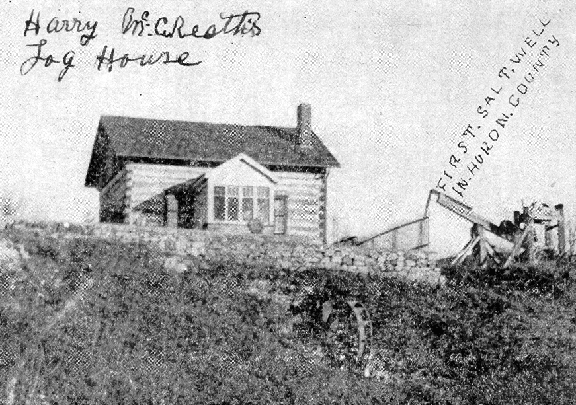 Harry McCreath's
Log House
FIRST. SALT. WELL
IN. HURON. COUNTY